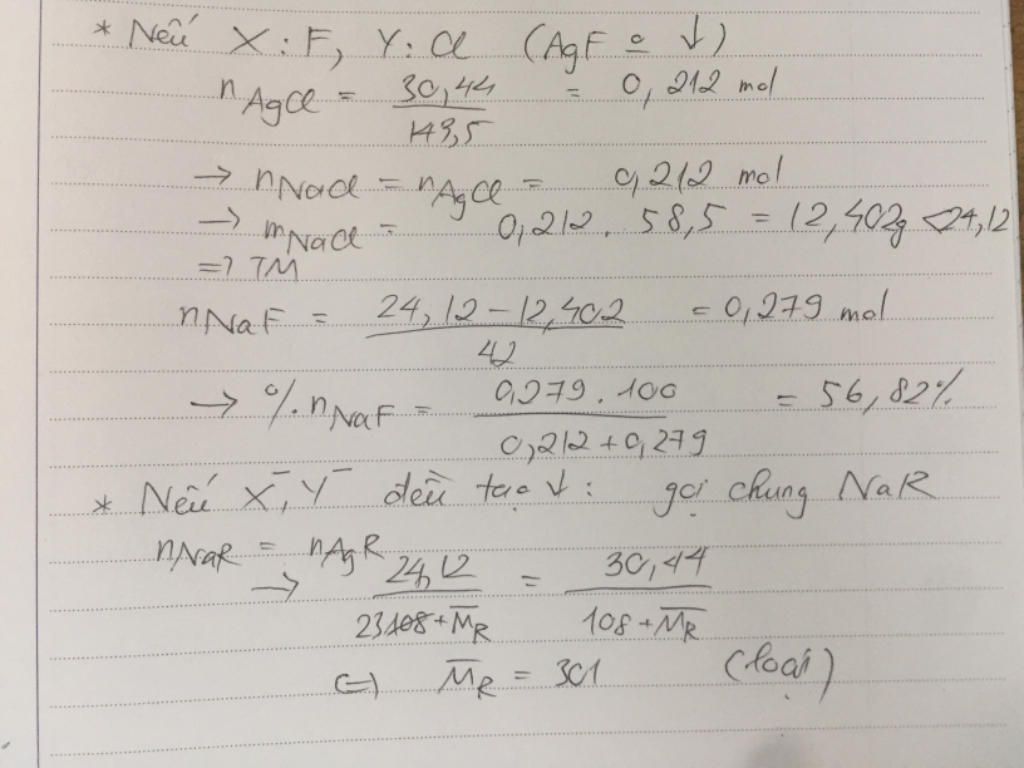 * Nếu X : F, Y : Cl (AgF o ↓)
nAgCl = 30,44 / 143,5 = 0,212 mol
→ nNaCl = nAgCl = 0,212 mol
→ mNaCl = 0,212 . 58,5 = 12,402g < 24,12
=> TM
nNaF = 24,12 - 12,402 / 42 = 0,279 mol
→ % nNaF = 0,279 . 100 / 0,212 + 0,279 = 56,82%
* Nếu X⁻, Y⁻ đều tạo ↓ : gọi chung NaR
nNaR = nAgR
→ 24,12 / 23 + M̅R = 30,44 / 108 + M̅R
<=> M̅R = 301 (loại)